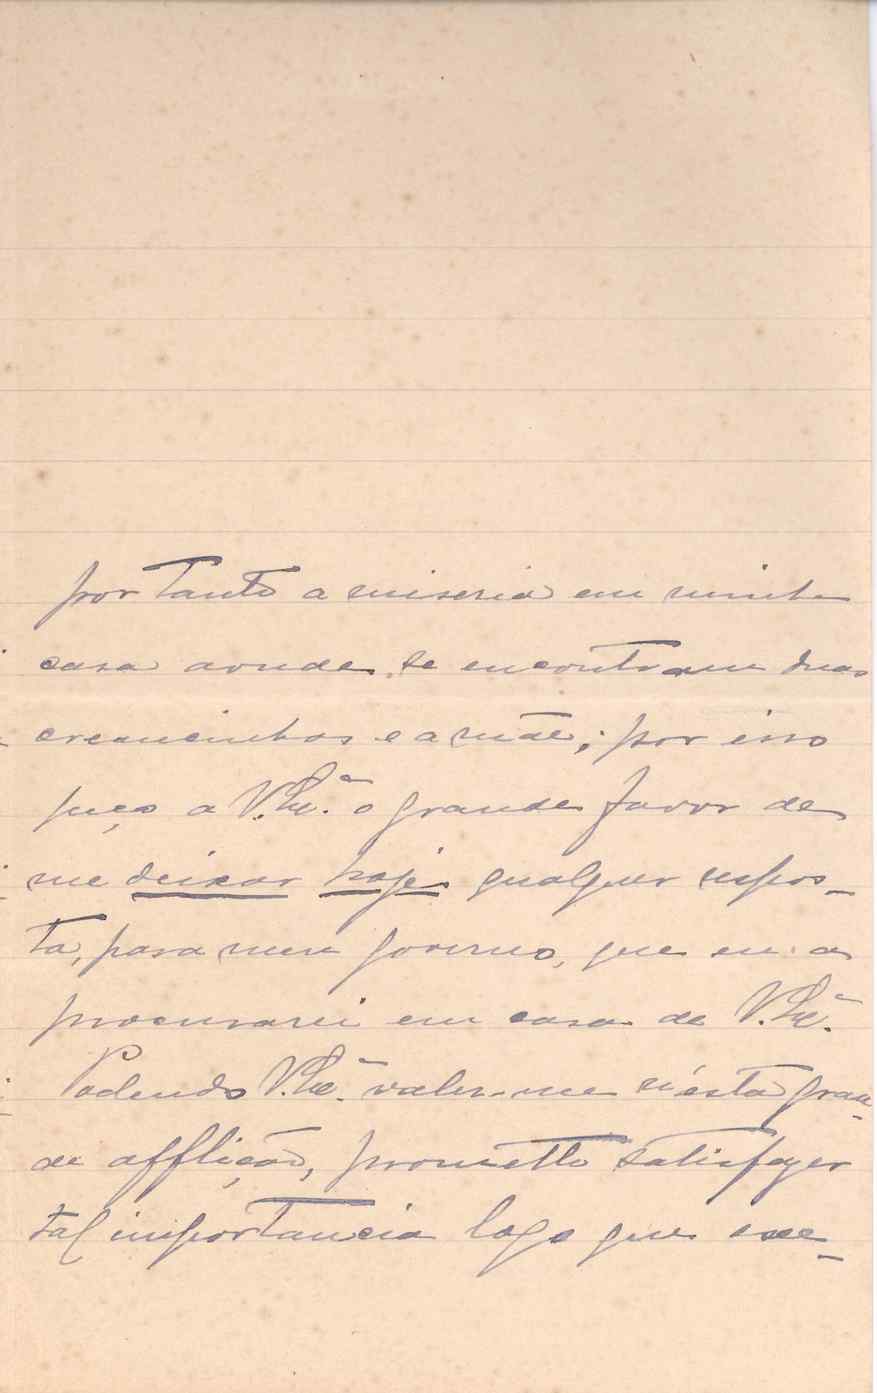 por tanto a miseria em minha
casa aonde se encontram duas
creancinhas e a mãe; por isso
peço a V. Exª. o grande favor de
me deixar hoje qualquer respos-
ta, para meu governo, que eu a
procurarei em casa de V. Exª.
Podendo V. Exª. valer-me n'esta gran-
de afflicção, prometto satisfazer
tal importancia logo que